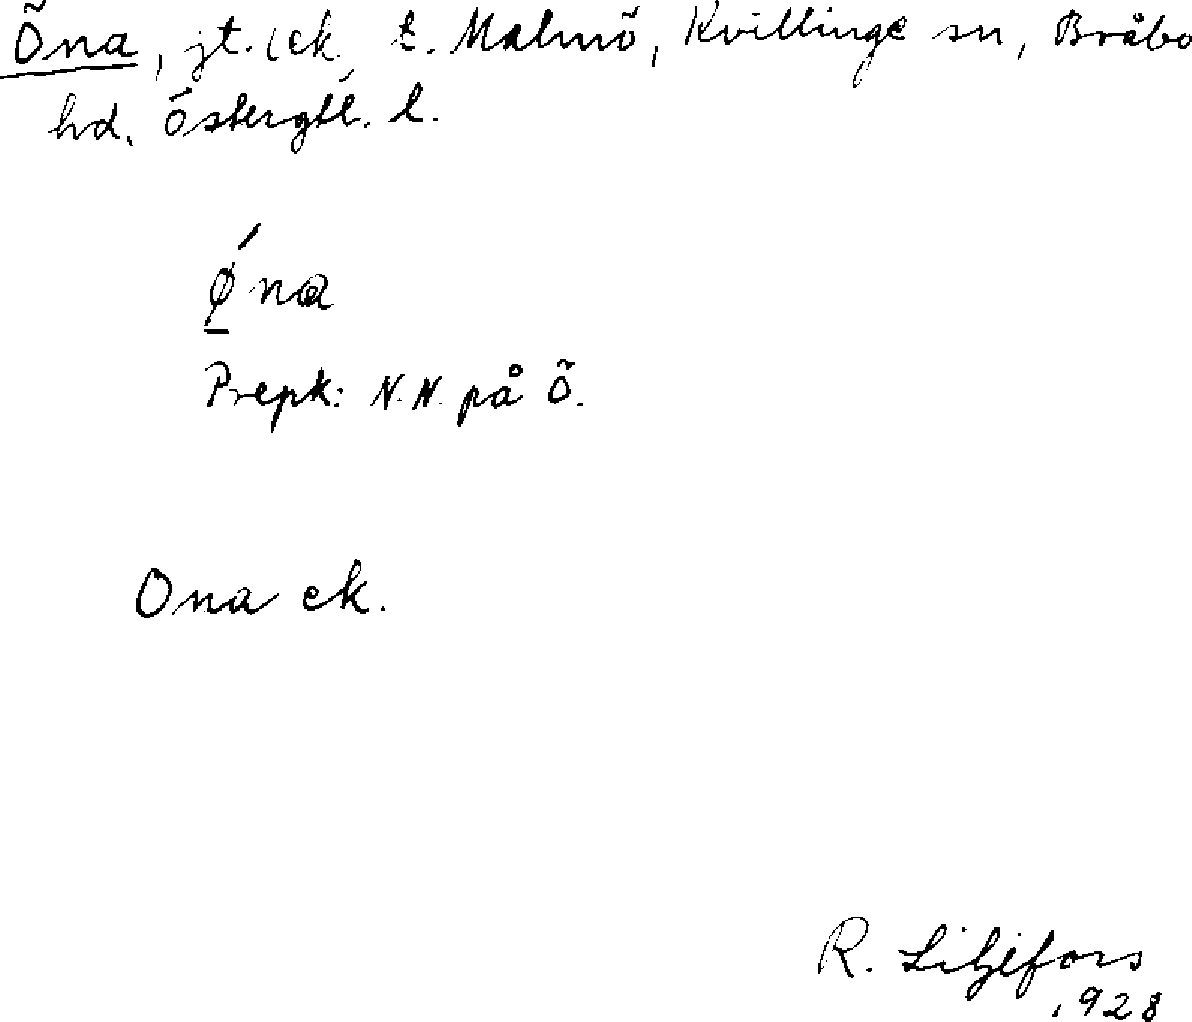 Öna, jt. (ek. t. Malmö, Kvillinge sn, Bråbo
hd. Östergtl. l.
Prepk: N.N. på Ö.
Ona ek.
R. Liljefors
1928